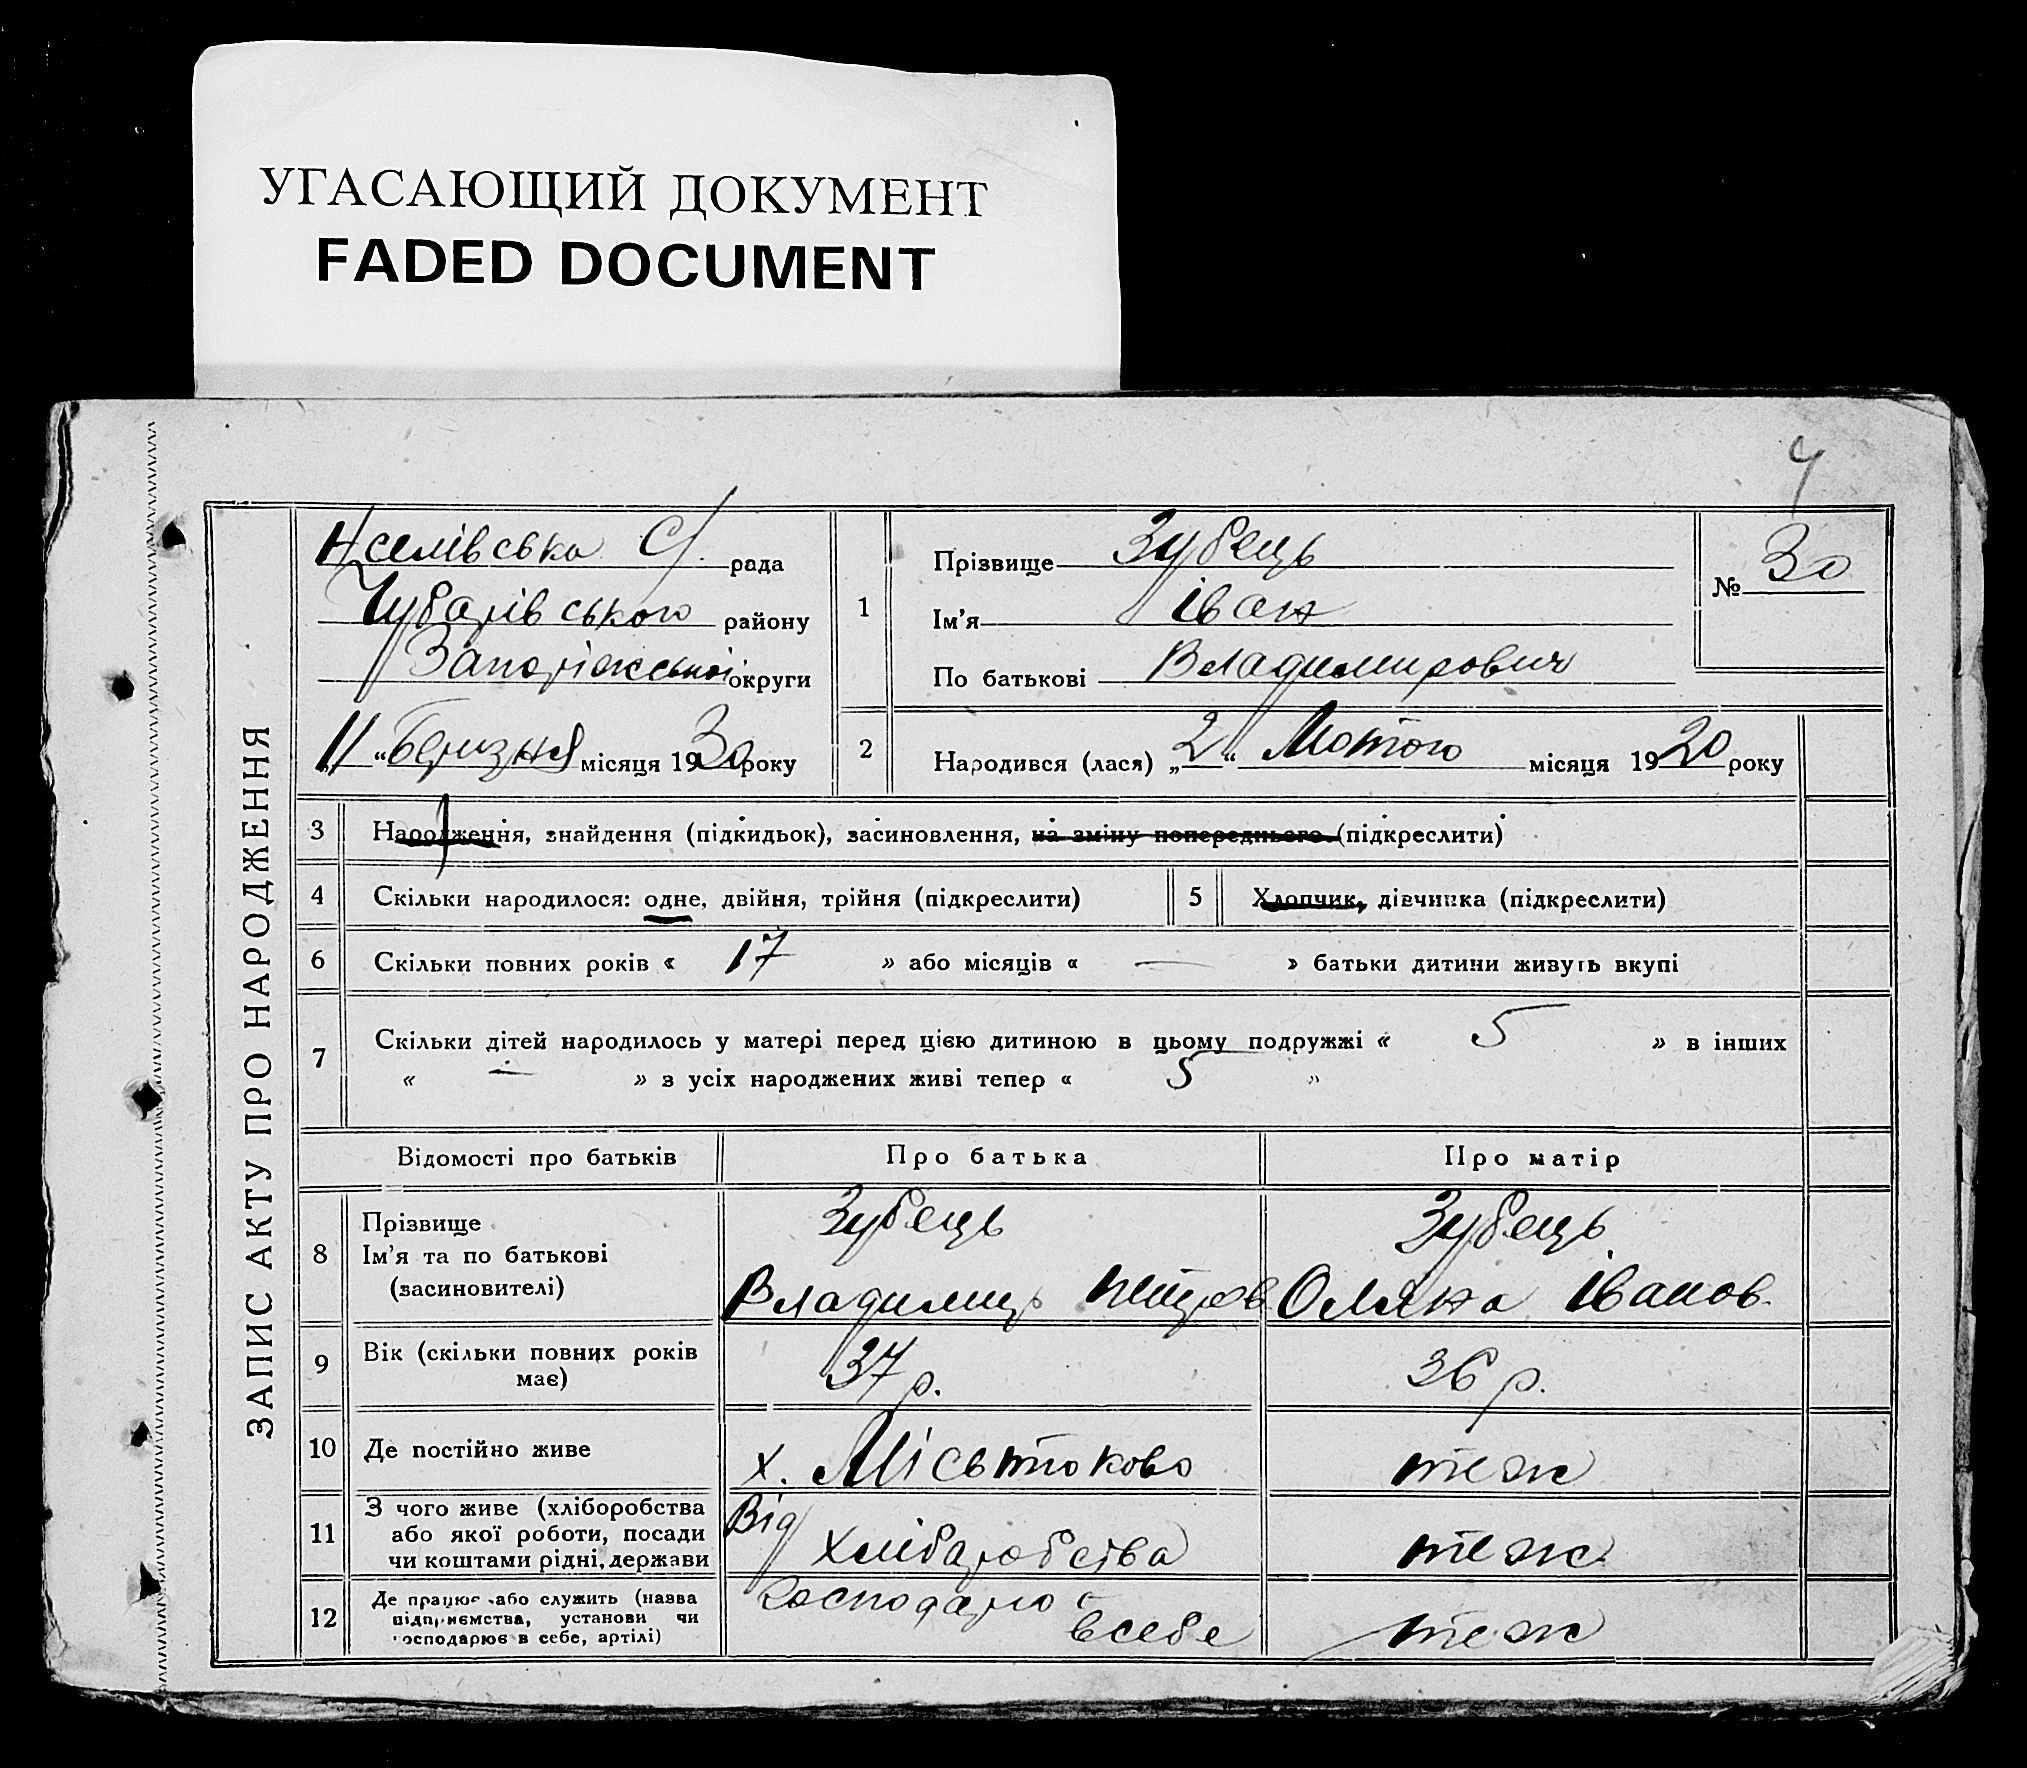 УГАСАЮЩИЙ ДОКУМЕНТ
FADED DOCUMENT
4
ЗАПИС АКТУ ПРО НАРОДЖЕННЯ
С/. рада
Чубарівського району
Запоріжської округи
11 „ Березня місяця 1930 року
1
Прізвище Зубець
Ім'я Іван
По батькові Владимирович
№ 30
2
Народився (лася) „2“ Лютого місяця 1920 року
3 Народження, знайдення (підкидьок), засиновлення, на зміну попереднього (підкреслити)
4 Скільки народилося: одне, двійня, трійня (підкреслити)
5 Хлопчик, дівчинка (підкреслити)
6 Скільки повних років « 17 » або місяців « — » батьки дитини живуть вкупі
7 Скільки дітей народилось у матері перед цією дитиною в цьому подружжі « 5 » в інших
« — » з усіх народжених живі тепер « 5 »
Відомості про батьків Про батька Про матір
8 Прізвище
Ім'я та по батькові
(засиновителі)
Зубець
Владимир Петров
Зубець
Оляна Іванов.
9 Вік (скільки повних років
має)
37 р. 36 р.
10 Де постійно живе х. теж
11 З чого живе (хліборобства
або якої роботи, посади
чи коштами рідні, держави
Від
хлібаробства теж
12 Де працює або служить (назва
підприємства, установи чи
господарює в себе, артілі)
господарю
в себе теж